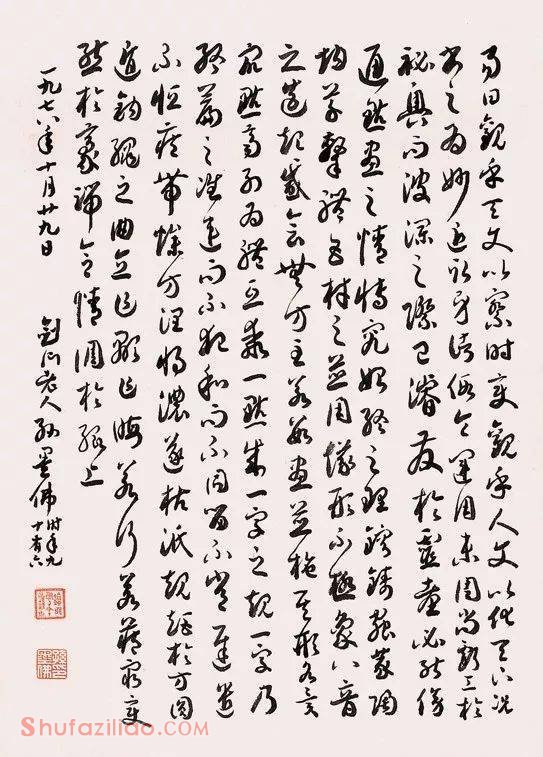 易曰觀乎天文以察时变觀乎人文以化天下況
书之为妙近取身诸假令運用未周尚虧工於
秘奥而波瀾之際已濬發於靈臺必能傍
通點畫之情博究始終之理鎔鑄蟲篆陶
均草隸體五材之並用儀形不極象八音
之迭起感會無方至若數畫並施其形各異
衆點齊列為體互乖一點成一字之規一字乃
終篇之準違而不犯和而不同留不常遲遣
不恒疾帶燥方潤將濃遂枯泯規矩於方圓
遁鉤繩之曲直乍顯乍晦若行若藏窮變
態於豪端合情調於紙上
一九七八年十月廿九日
劍門老人孫墨佛时年九
十有六
Shufaziliao.COM